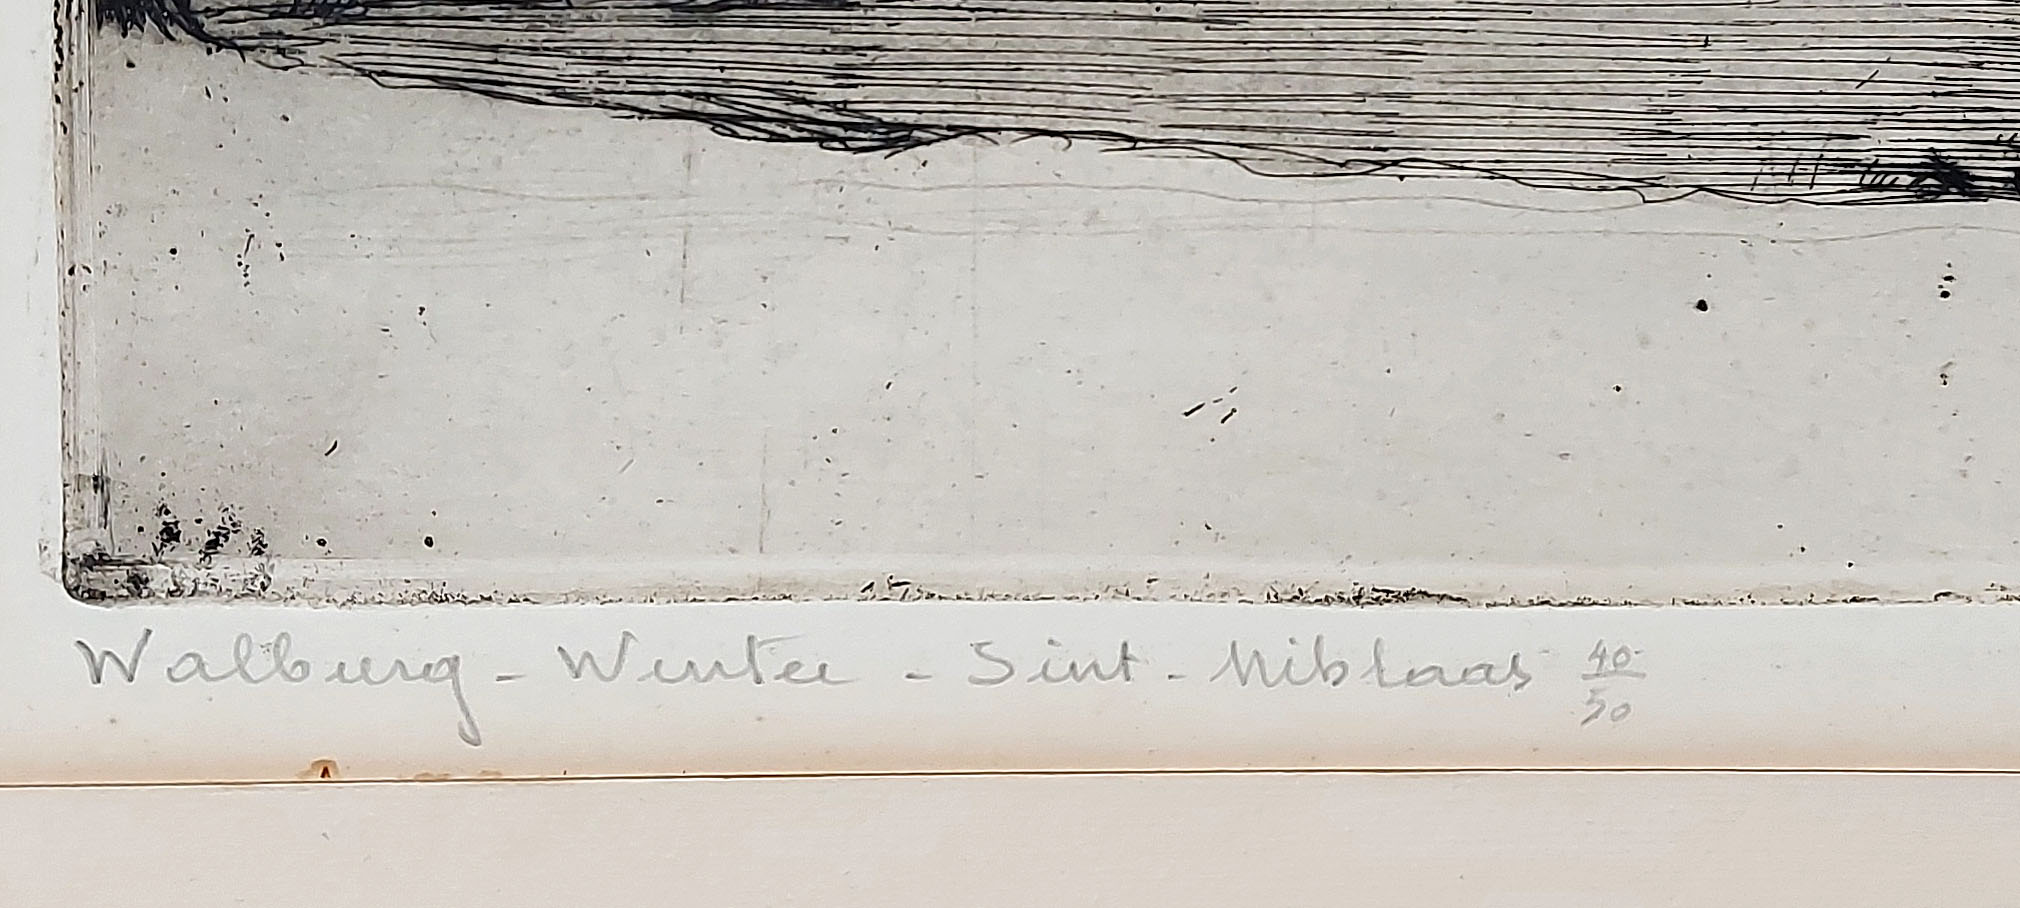 Walburg - Winter - Sint - Niklaas 40/50